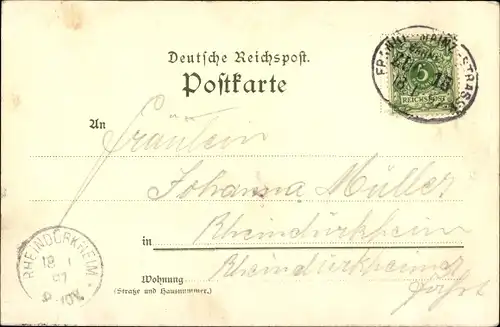 Deutsche Reichspost.
Postkarte
5
REICHSPOST
An
Fräulein
Johanna Müller
in Rheindürkheim
Wohnung Rheindürkheimer
(Straße und Hausnummer.)
RHEINDÜRKHEIM
18 1
97